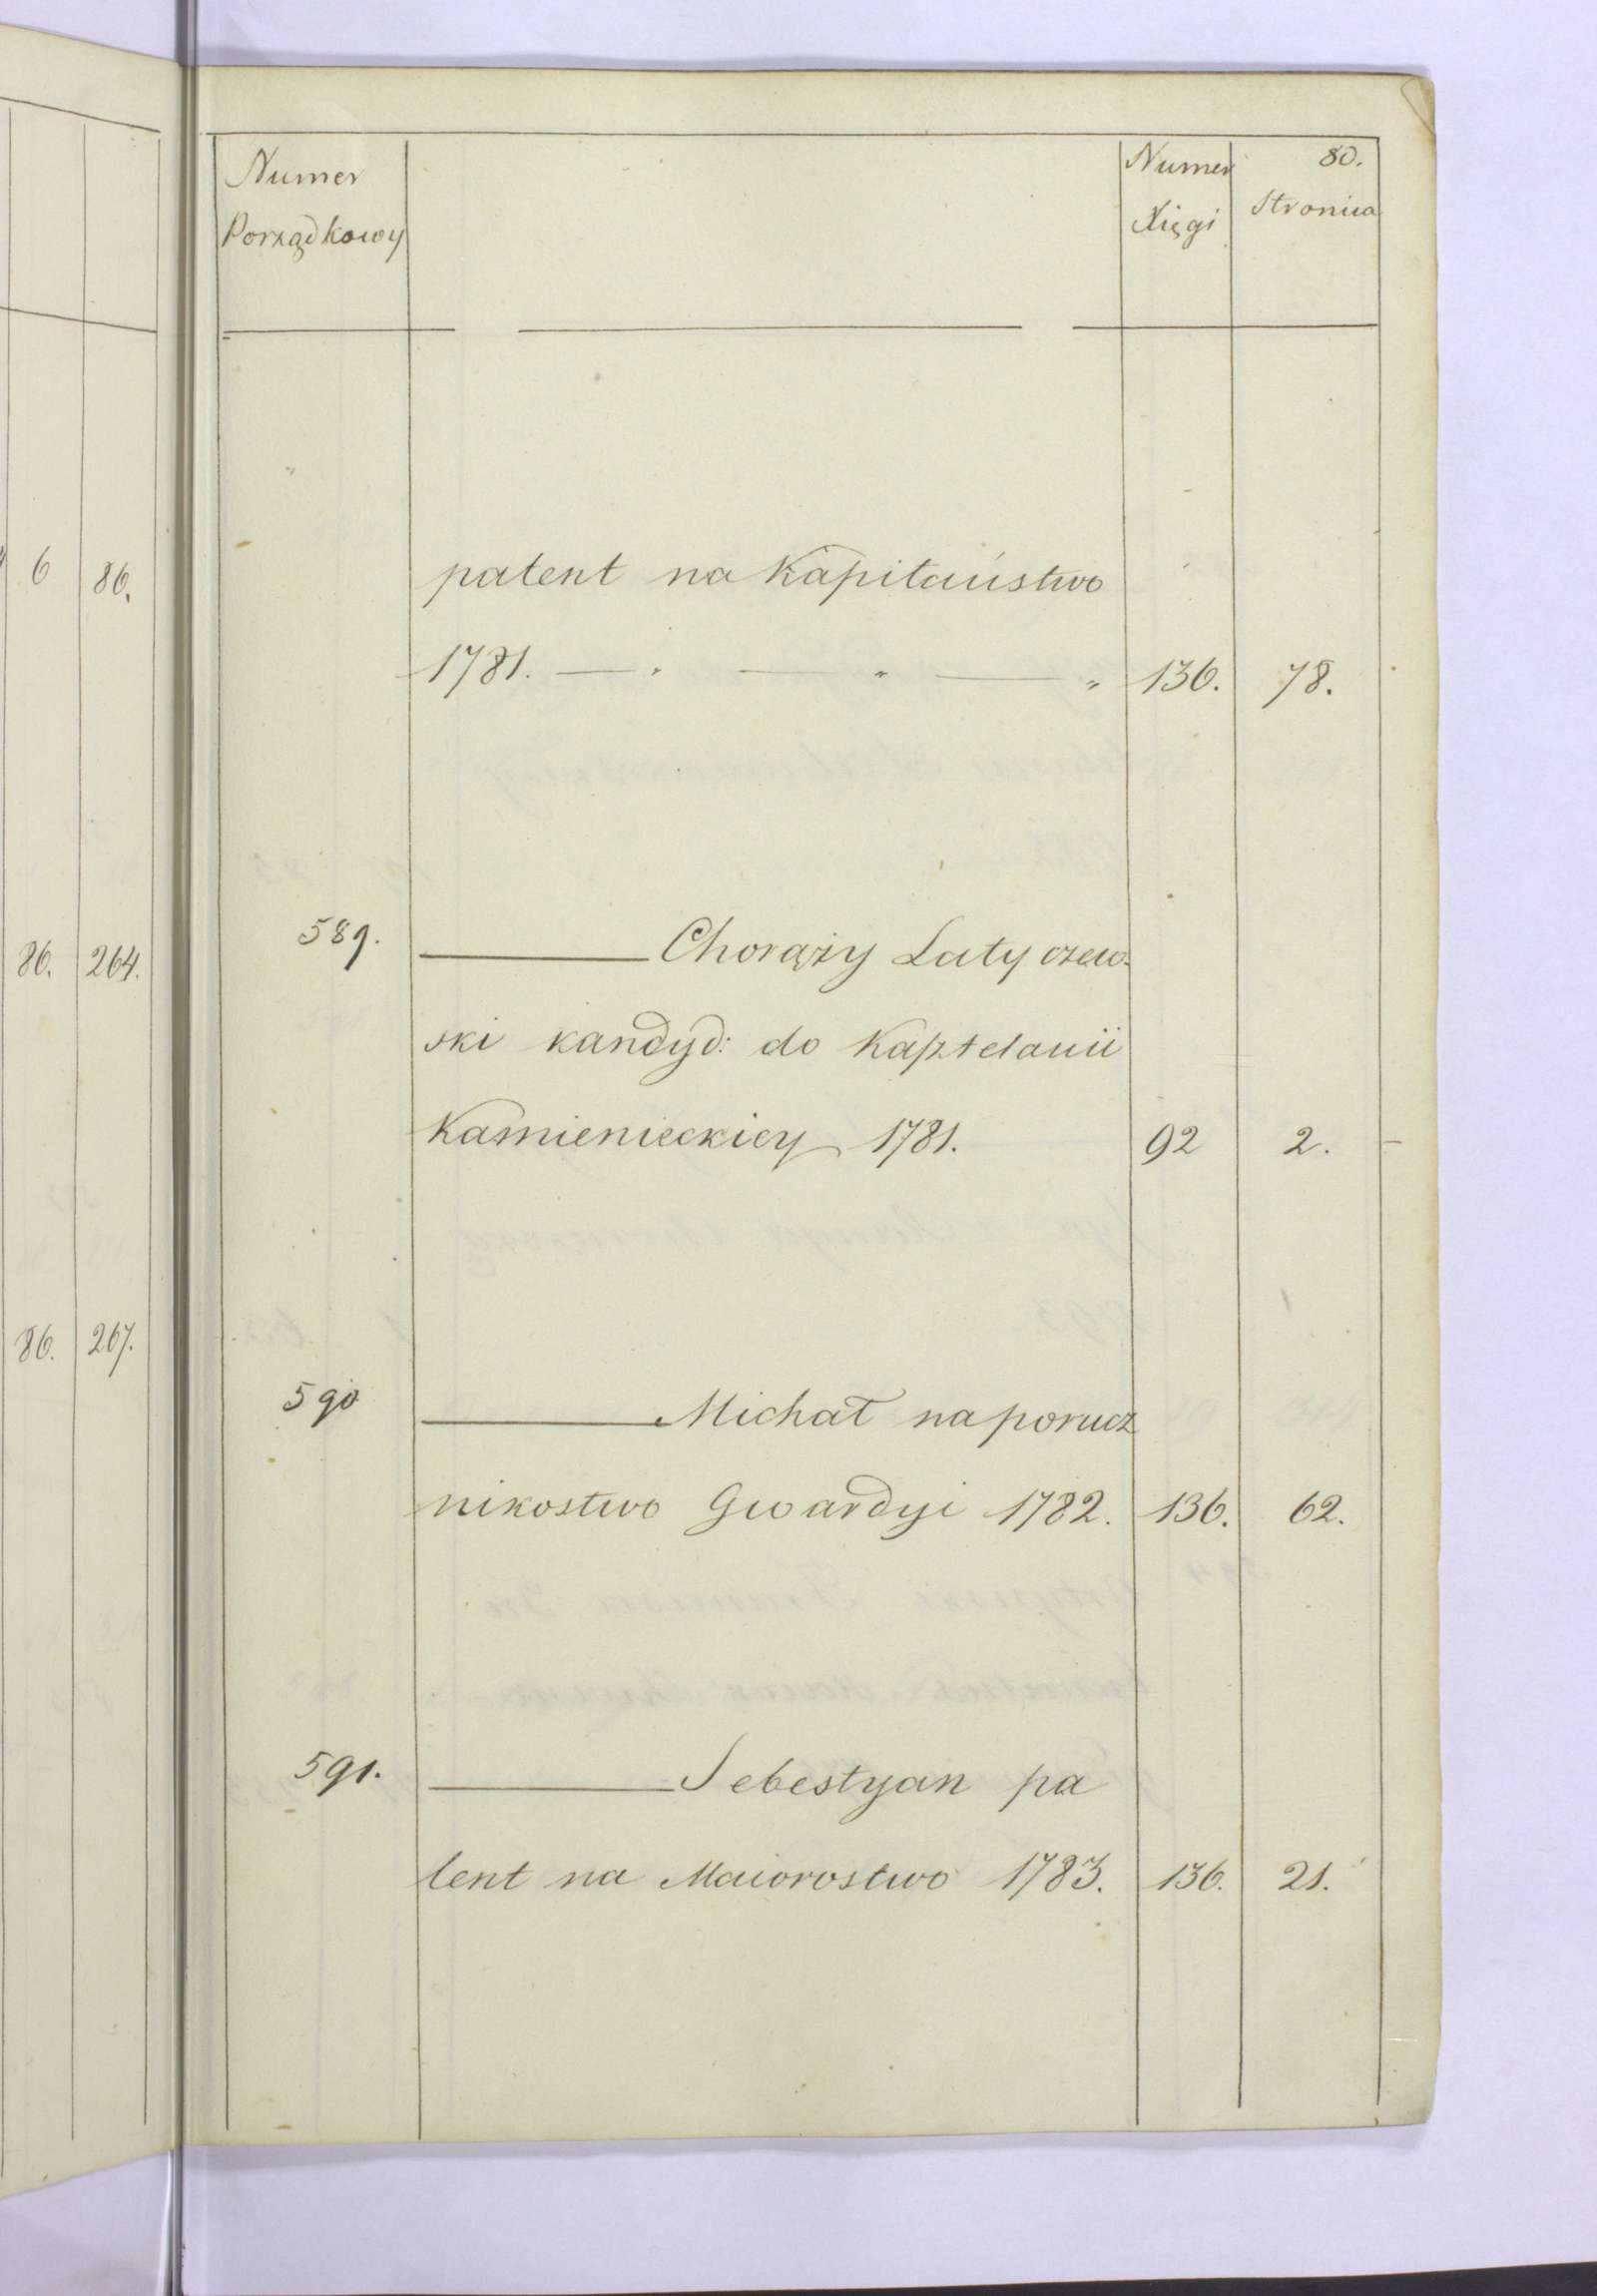 6 86.
86. 264.
86. 267.
80.
Numer Porządkowy
Numer Xięgi
Stronica
patent na Kapitaństwo
1781. — " — " — " 136. 78.
589. ——— Chorąży Latyczew-
ski kandyd: do Kasztelanii
Kamienieckiey 1781. 92 2.
590 ——— Michał na porucz
nikostwo Gwardyi 1782. 136. 62.
591. ——— Sebestyan pa
tent na Maiorostwo 1783. 136. 21.